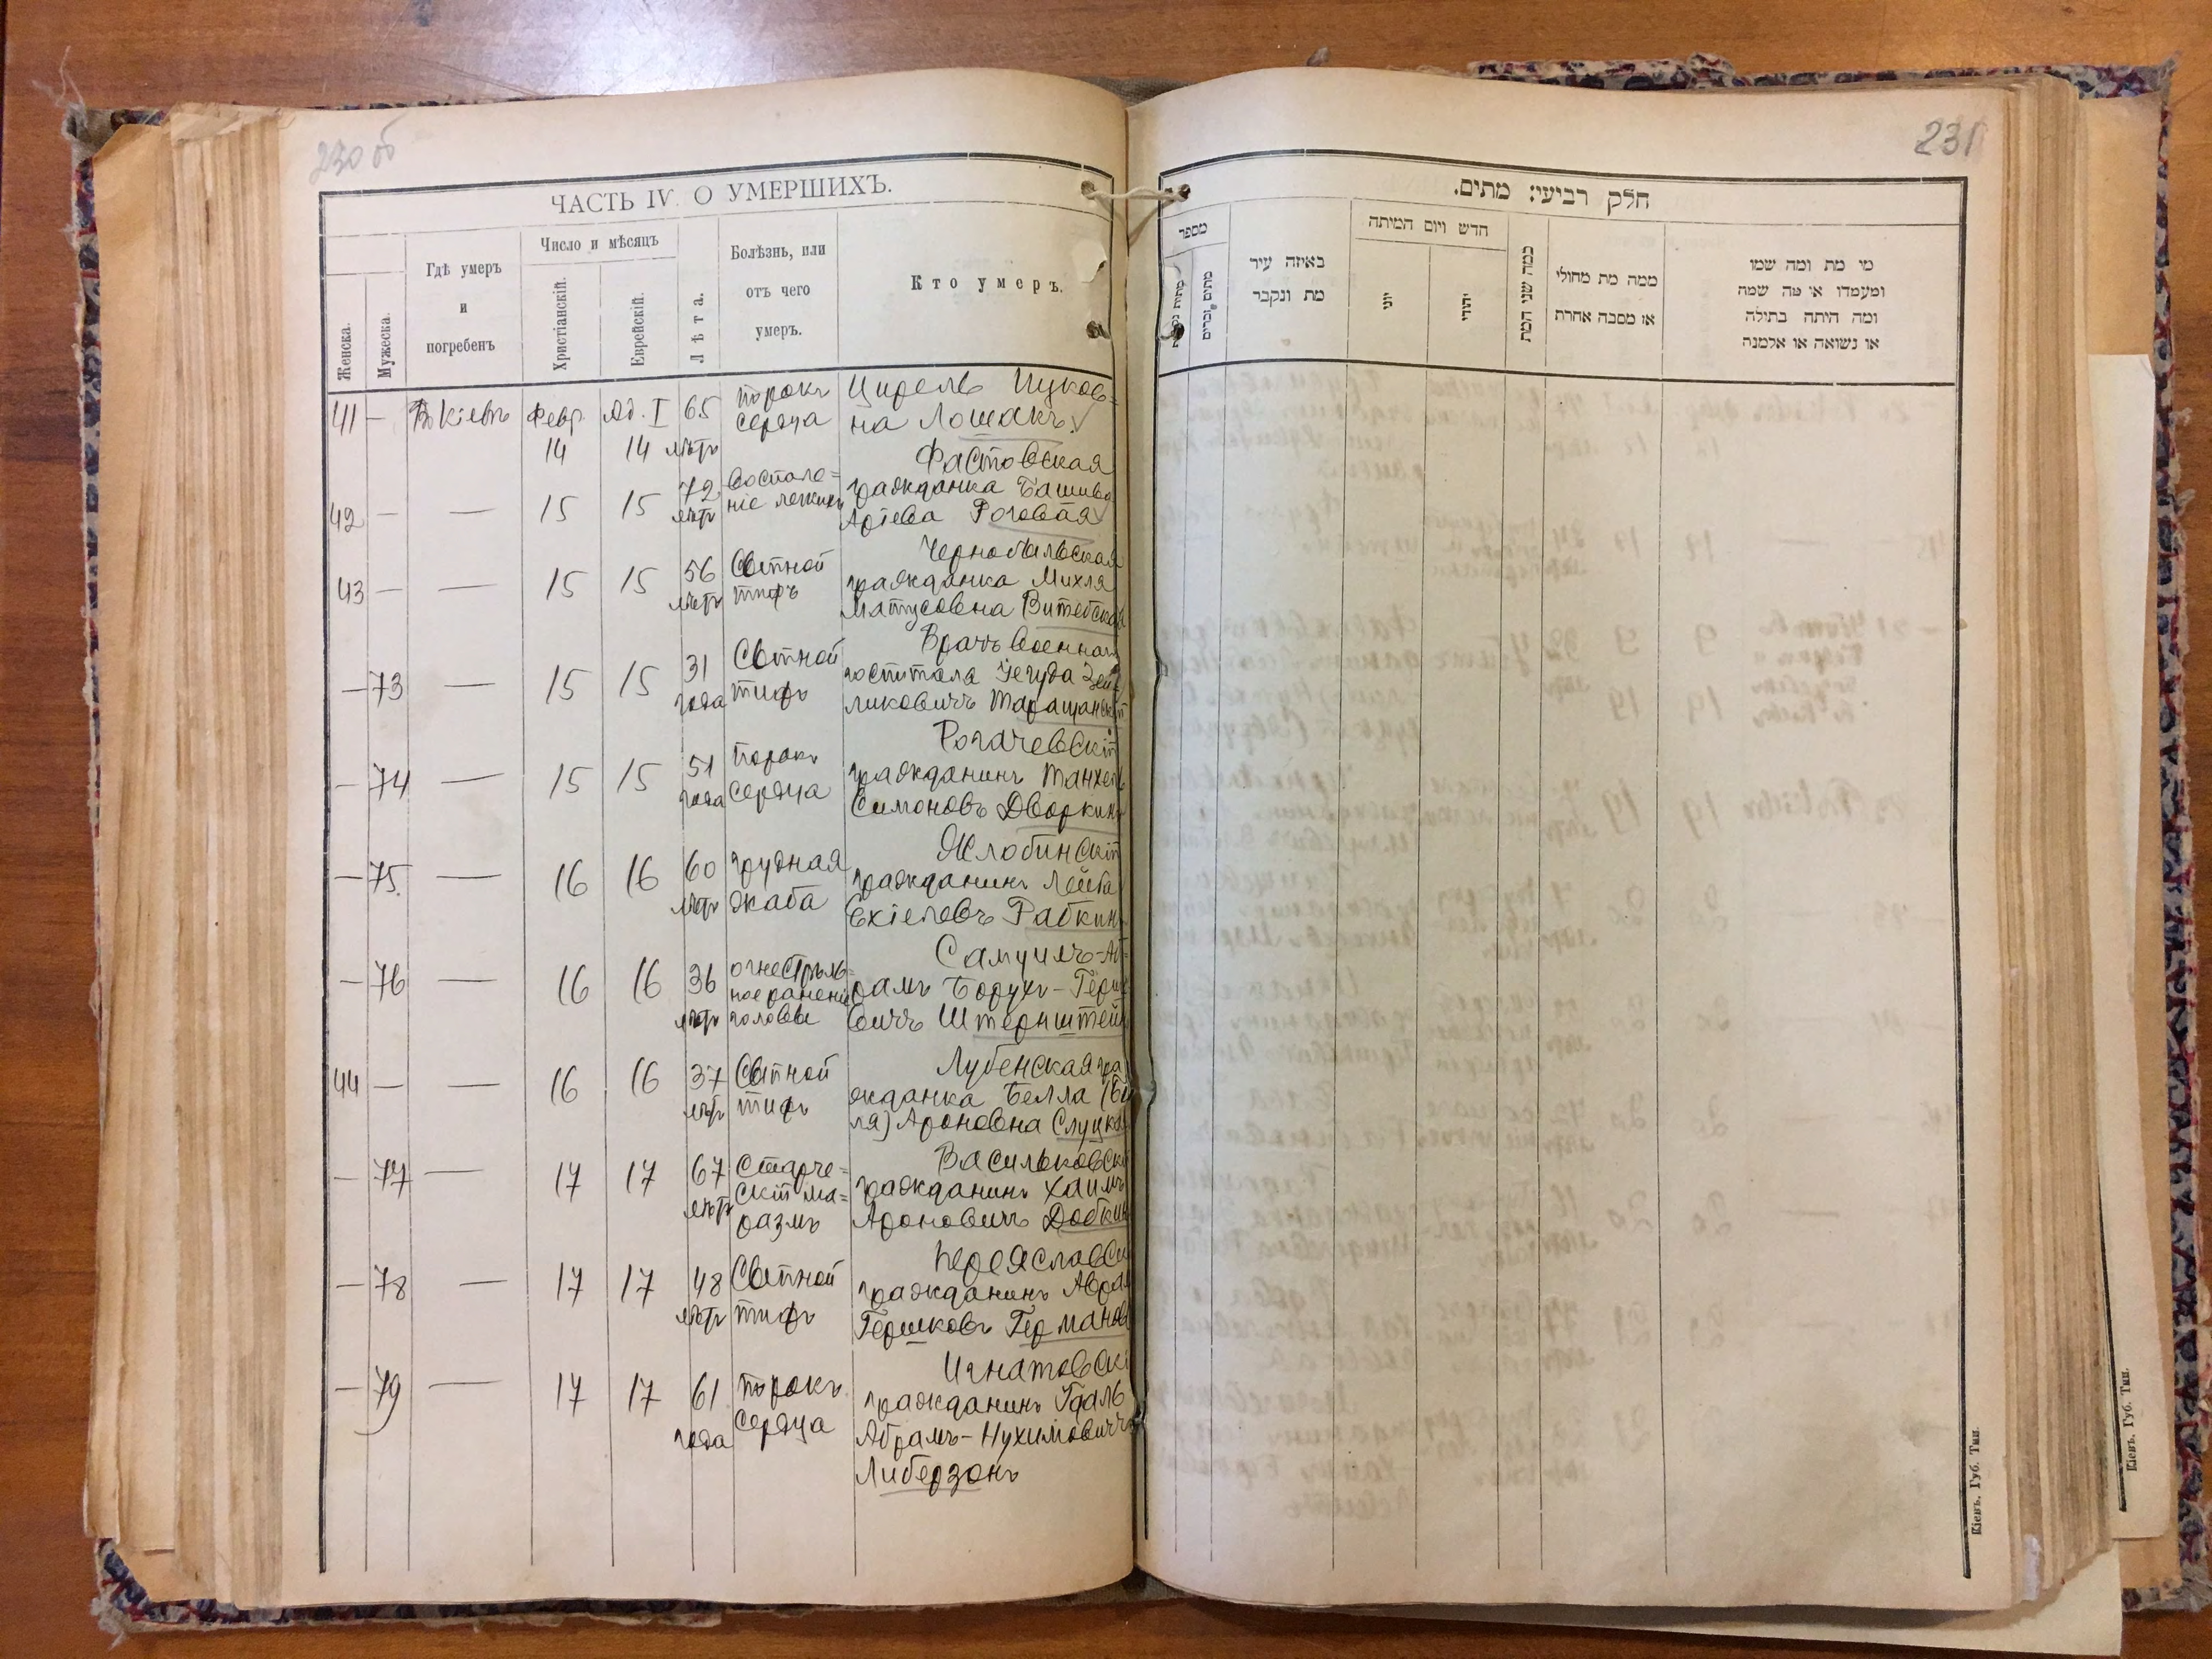 230 об
ЧАСТЬ IV. О УМЕРШИХЪ.
Женска.
Мужеска.
Гдѣ умеръ
и
погребенъ
Число и мѣсяцъ
Христіанскій.
Еврейскій.
Лѣта.
Болѣзнь, или
отъ чего
умеръ.
Кто умеръ.
41 — Въ Кіевѣ Февр. 14 Ад. I 14 65 лѣтъ
порокъ
сердца
Цирель Ицков=
на Лошакъ
42 — — 15 15 72 лѣтъ
воспале=
ніе легкихъ
Фастовская
гражданка Башива
Аріева Роговая
43 — — 15 15 56 лѣтъ
Сыпной
тифъ
Чернобыльская
гражданка Михля
Матусовна Витебская
— 73 — 15 15 31 года
Сыпной
тифъ
Врачъ военнаго
госпиталя Іегуда Зей
ликовичъ Таращанскій
— 74 — 15 15 51 года
Порокъ
сердца
Рогачевскій
гражданинъ Танхель
Симоновъ Дворкинъ
— 75. — 16 16 60 лѣтъ
грудная
жаба
Жлобинскій
гражданинъ Лейба
Ехіелевъ Рабкинъ
— 76 — 16 16 36 лѣтъ
огнестрѣль=
ное раненіе
головы
Самуилъ-Аб=
рамъ Борух-Герш
вичъ Штернштейн
44 — — 16 16 37 лѣтъ
Сыпной
тифъ
Лубенская гра
жданка Белла (Бе
ля) Ароновна Слуцкая
— 77 — 17 17 67 лѣтъ
Старче=
скій ма=
размъ
Васильковскі
гражданинъ Хаимъ
Ароновичъ Добкин
— 78 — 17 17 48 лѣтъ
Сыпной
тифъ
Переяславск
гражданинъ Авра
Гершковъ Германов
— 79 — 17 17 61 года
порокъ
сердца
Игнатовскі
гражданинъ Гдаль
Абрамъ-Нухимовичъ
Либерзонъ
231
חלק רביעי: מתים.
מספר
מתים זכרים
באיזה עיר
מת ונקבר
חדש ויום המיתה
יוני
יהודי
כמה שני המת
ממה מת מחולי
או מסבה אחרת
מי מת ומה שמו
ומעמדו או מה שמה
ומה היתה בתולה
או נשואה או אלמנה
Кіевъ. Губ. Тип.
Кіевъ. Губ. Тип.